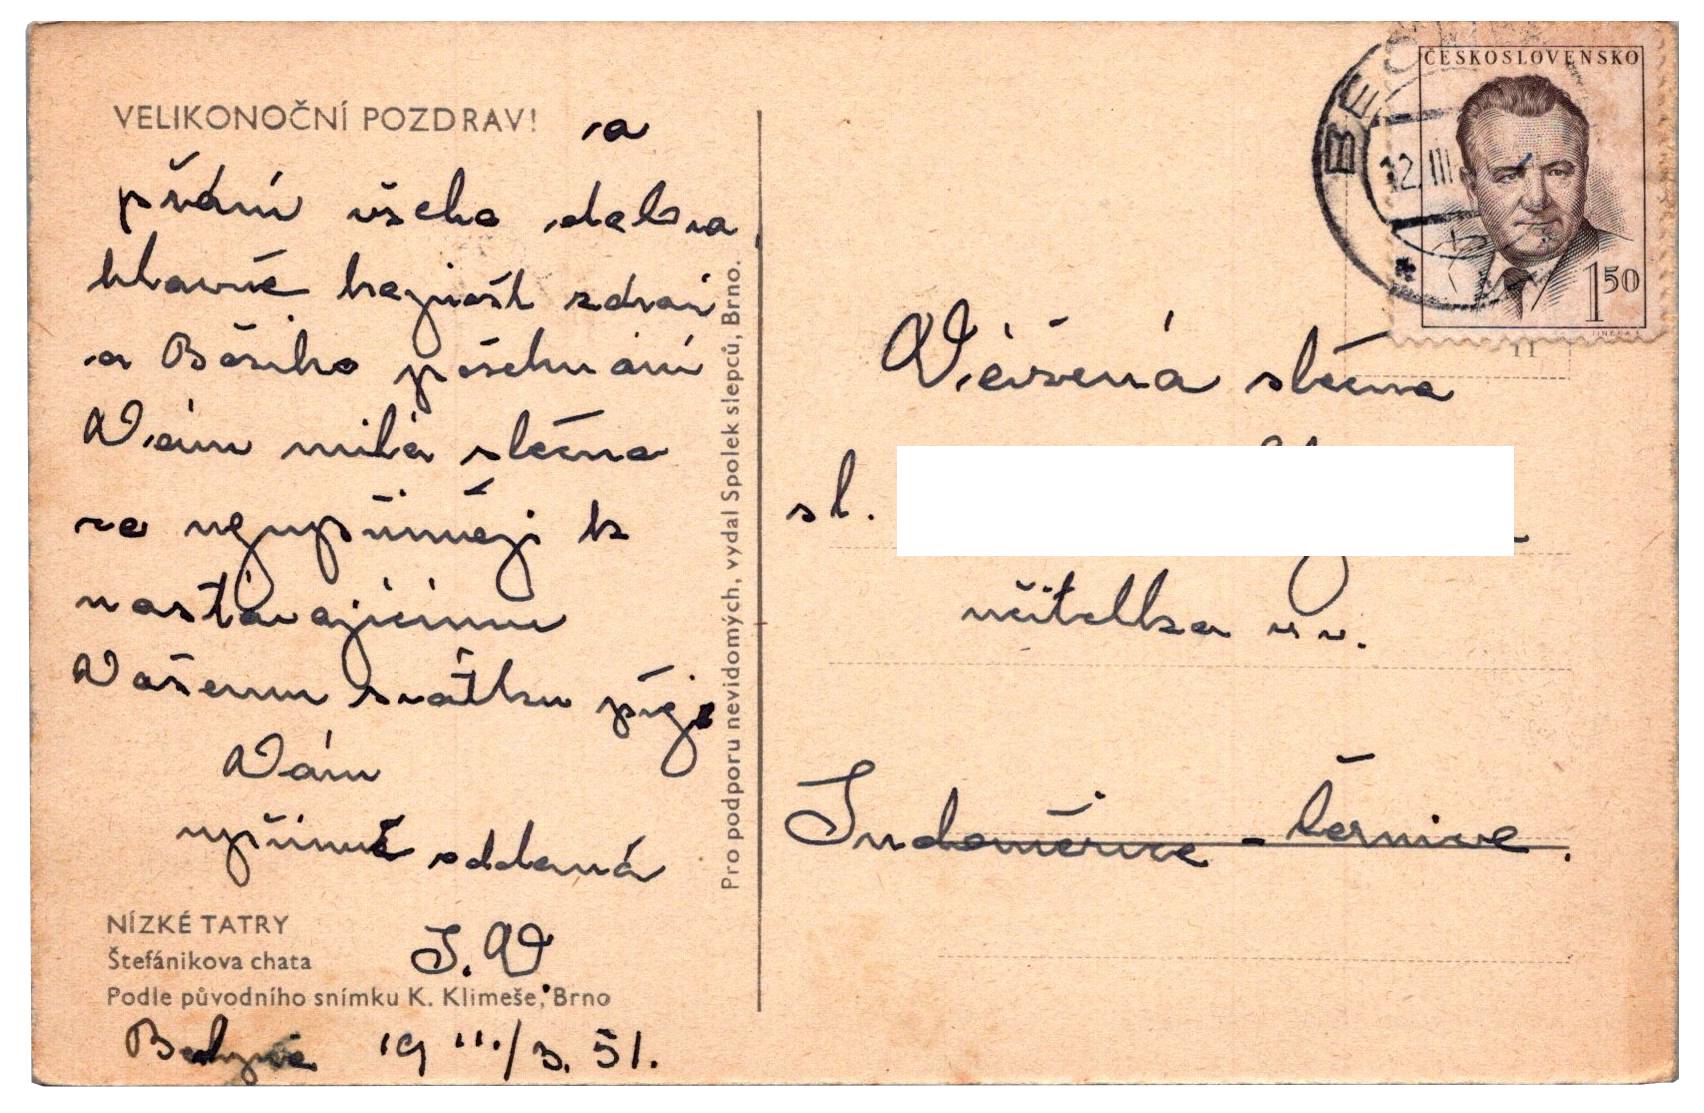 VELIKONOČNÍ POZDRAV! a
přání všeho dobra,
hlavně hojnost zdraví
a Božího požehnání
Vám milá slečno
co nejupřímněji k
nastávajícímu
Vašemu svátku přeje
Vám
upřímně oddaná
J. V.
NÍZKÉ TATRY
Štefánikova chata
Podle původního snímku K. Klimeše, Brno
19 III./3. 51.
Pro podporu nevidomých, vydal Spolek slepců, Brno.
ČESKOSLOVENSKO
1 50
12. III
Vážená slečna
sl.
učitelka v v.
Sudoměřice - Černice.